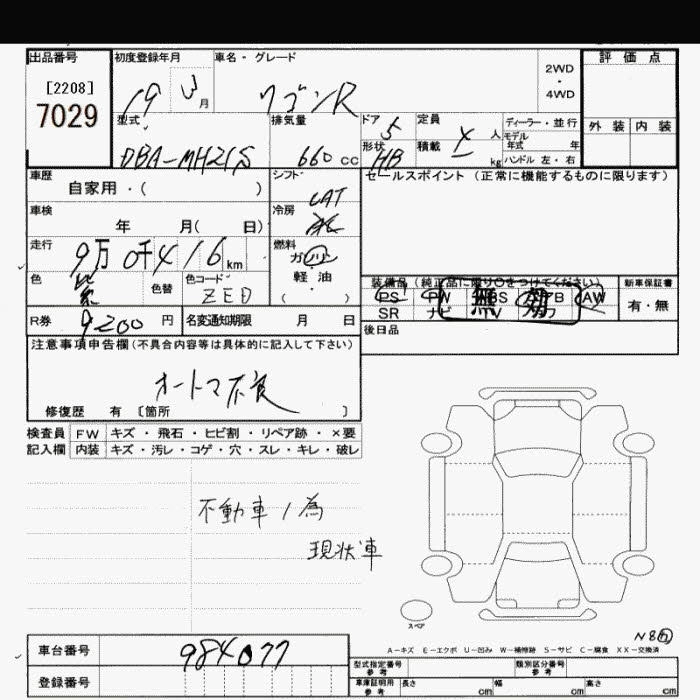 出品番号 初度登録年月 車名・グレード 評価点
[2208]
7029
19 年 月 ワゴンR 2WD
・
4WD
型式 排気量 ドア 定員 ディーラー・並行 外装 内装
DBA-MH21S 660 cc 5 人 モデル年式 年
形状 HB 積載 kg ハンドル 左・右
車歴 シフト セールスポイント (正常に機能するものに限ります)
自家用・( ) CAT
車検 冷房
年 月( 日) AC
走行 燃料
9万 0千416 km ガソリン
色 色替 色コード 軽油
紫 ZED ( )
装備品 (純正品に限り○をつけてください) 新車保証書
PS PW ABS エアB AW 有・無
SR ナビ TV カワ
無 効
R券 9200 円 名変通知期限 月 日 後日品
注意事項申告欄 (不具合内容等は具体的に記入して下さい)
オートマ不良
修復歴 有 〔箇所 〕
検査員 FW キズ・飛石・ヒビ割・リペア跡・×要
記入欄 内装 キズ・汚レ・コゲ・穴・スレ・キレ・破レ
不動車ノ為
現状車
スペア
N8
A-キズ E-エクボ U-凹み W-補修跡 S-サビ C-腐食 XX-交換済
車台番号 984077
型式指定番号 参考 類別区分番号 参考
登録番号
車庫証明用 参考 長さ cm 幅 cm 高さ cm